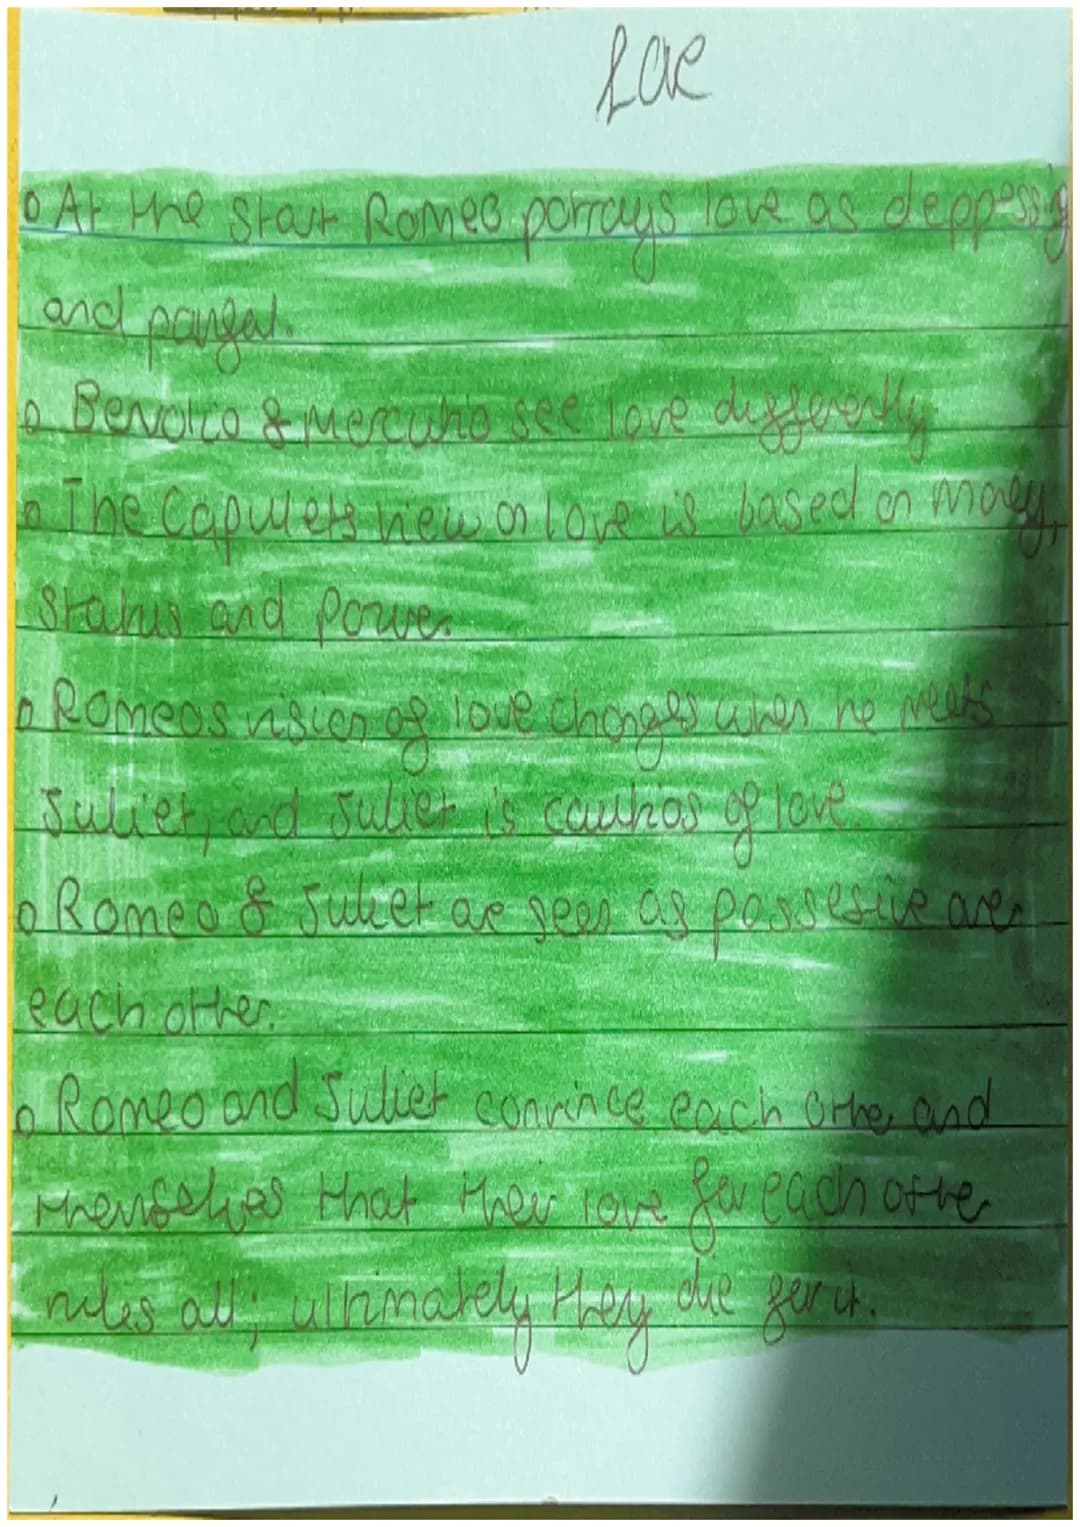 Love
o At the start Romeo portrays love as deppessig
and painful.
o Benvolio & Mercutio see love differently.
o The Capulets view on love is based on money,
status and power.
o Romeos vision of love changes when he meets
Juliet, and Juliet is cautios of love.
o Romeo & Juliet are seen as possesive over
each other.
o Romeo and Juliet convince each other and
themselves that their love for each other
rules all; ultimately they die for it.